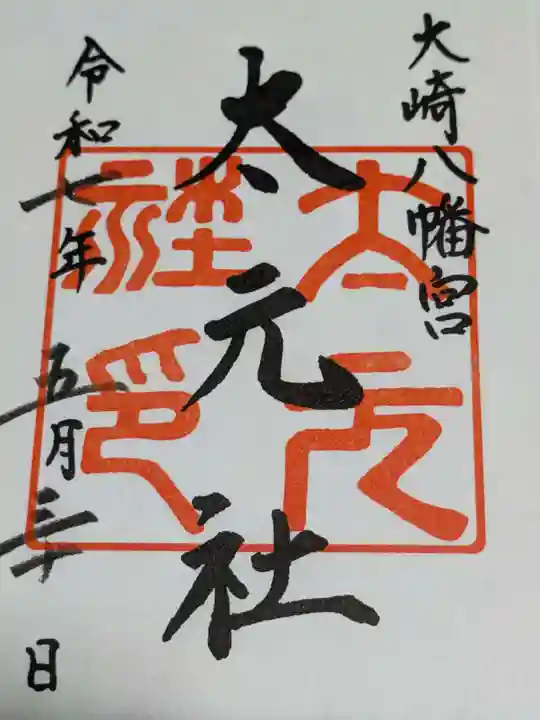 大崎八幡宮
太元社
太元社印
令和七年 五月三十日